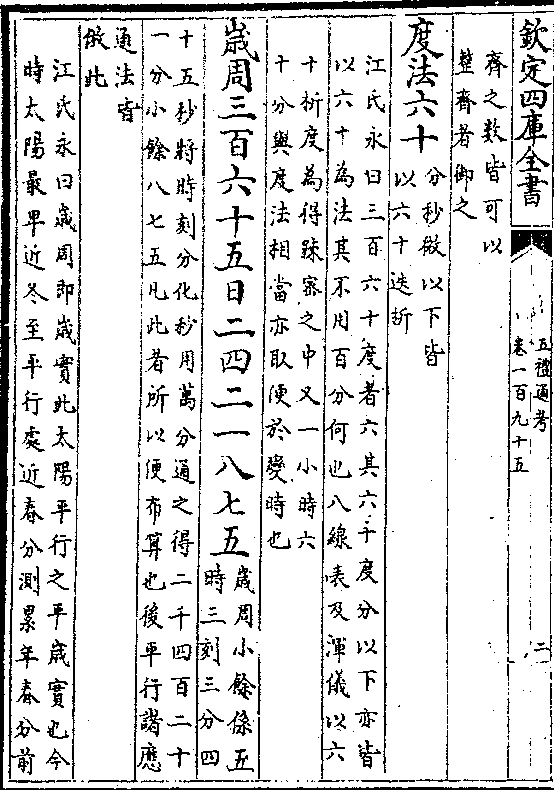 欽定四庫全書
五禮通考
卷一百九十五
二
齊之數皆可以
整齊者御之
度法六十
分秒微以下皆
以六十迭析
江氏永曰三百六十度者六其六十度分以下亦皆
以六十為法其不用百分何也八線表及渾儀以六
十析度為得疎密之中又一小時六
十分與度法相當亦取便於變時也
歲周三百六十五日二四二一八七五
歲周小餘係五
時三刻三分四
十五秒將時刻分化秒用萬分通之得二千四百二十
一分小餘八七五凡此者所以便布算也後平行諸應
通法皆
倣此
江氏永曰歲周即歲實此太陽平行之平歲實也今
時太陽最卑近冬至平行處近春分測累年春分前